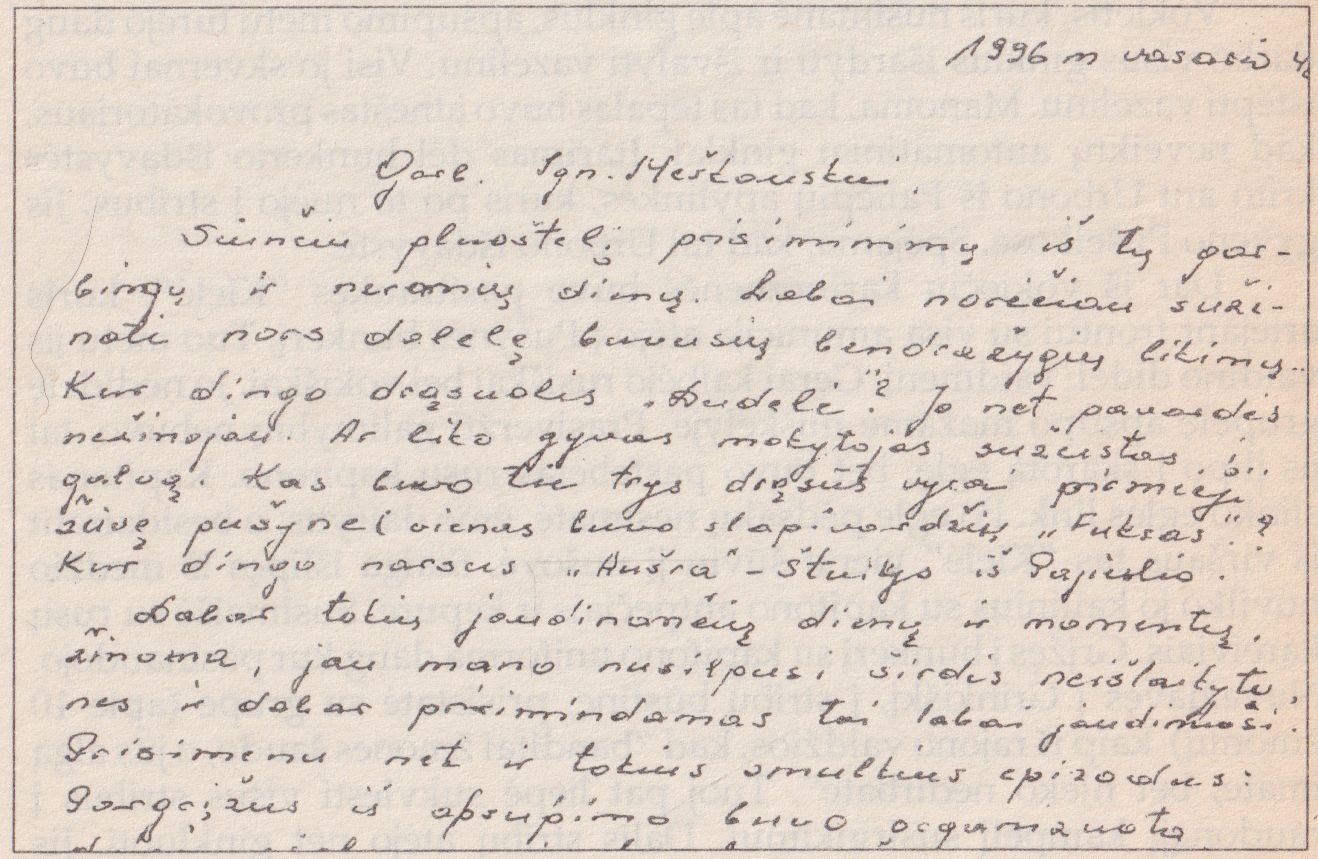 1996 m vasario 4
Gerb. Ign. Meškauskui.
Siunčiu pluoštelį prisiminimų iš tų gar-
bingų ir neramių dienų. Labai norėčiau suži-
noti nors dalelę buvusių bendražygių likimų..
Kur dingo drąsuolis „Dudelė"? Jo net pavardės
nežinojau. Ar liko gyvas mokytojas sužeistas į
galvą. Kas buvo tie trys drąsūs vyrai pirmieji
žuvę pušyne (vienas buvo slapivardžiu „Fuksas"?
Kur dingo narsus „Aušra" - Štuikys iš Pajieslio.
Dabar tokių jaudinančių dienų ir momentų,
žinoma, jau mano nusilpusi širdis neišlaikytų,
nes ir dabar prisimindamas tai labai jaudinuosi.
Prisimenu net ir tokius smulkius epizodus:
Pargrįžus iš apsupimo buvo organizuota